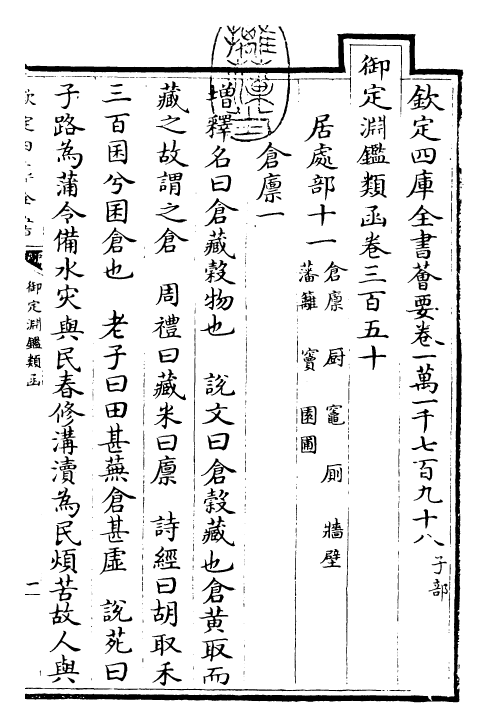 欽定四庫全書薈要卷一萬一千七百九十八 子部
御定淵鑑類函卷三百五十
居處部十一 倉廪 厨 竈 厠 牆壁
藩籬 竇 園圃
倉廪一
增釋名曰倉藏榖物也 說文曰倉榖藏也倉黄取而
藏之故謂之倉 周禮曰藏米曰廪 詩經曰胡取禾
三百囷兮囷倉也 老子曰田甚蕪倉甚虛 說苑曰
子路為蒲令備水灾與民春修溝瀆為民煩苦故人與
欽定四庫全書
御定淵鑑類函